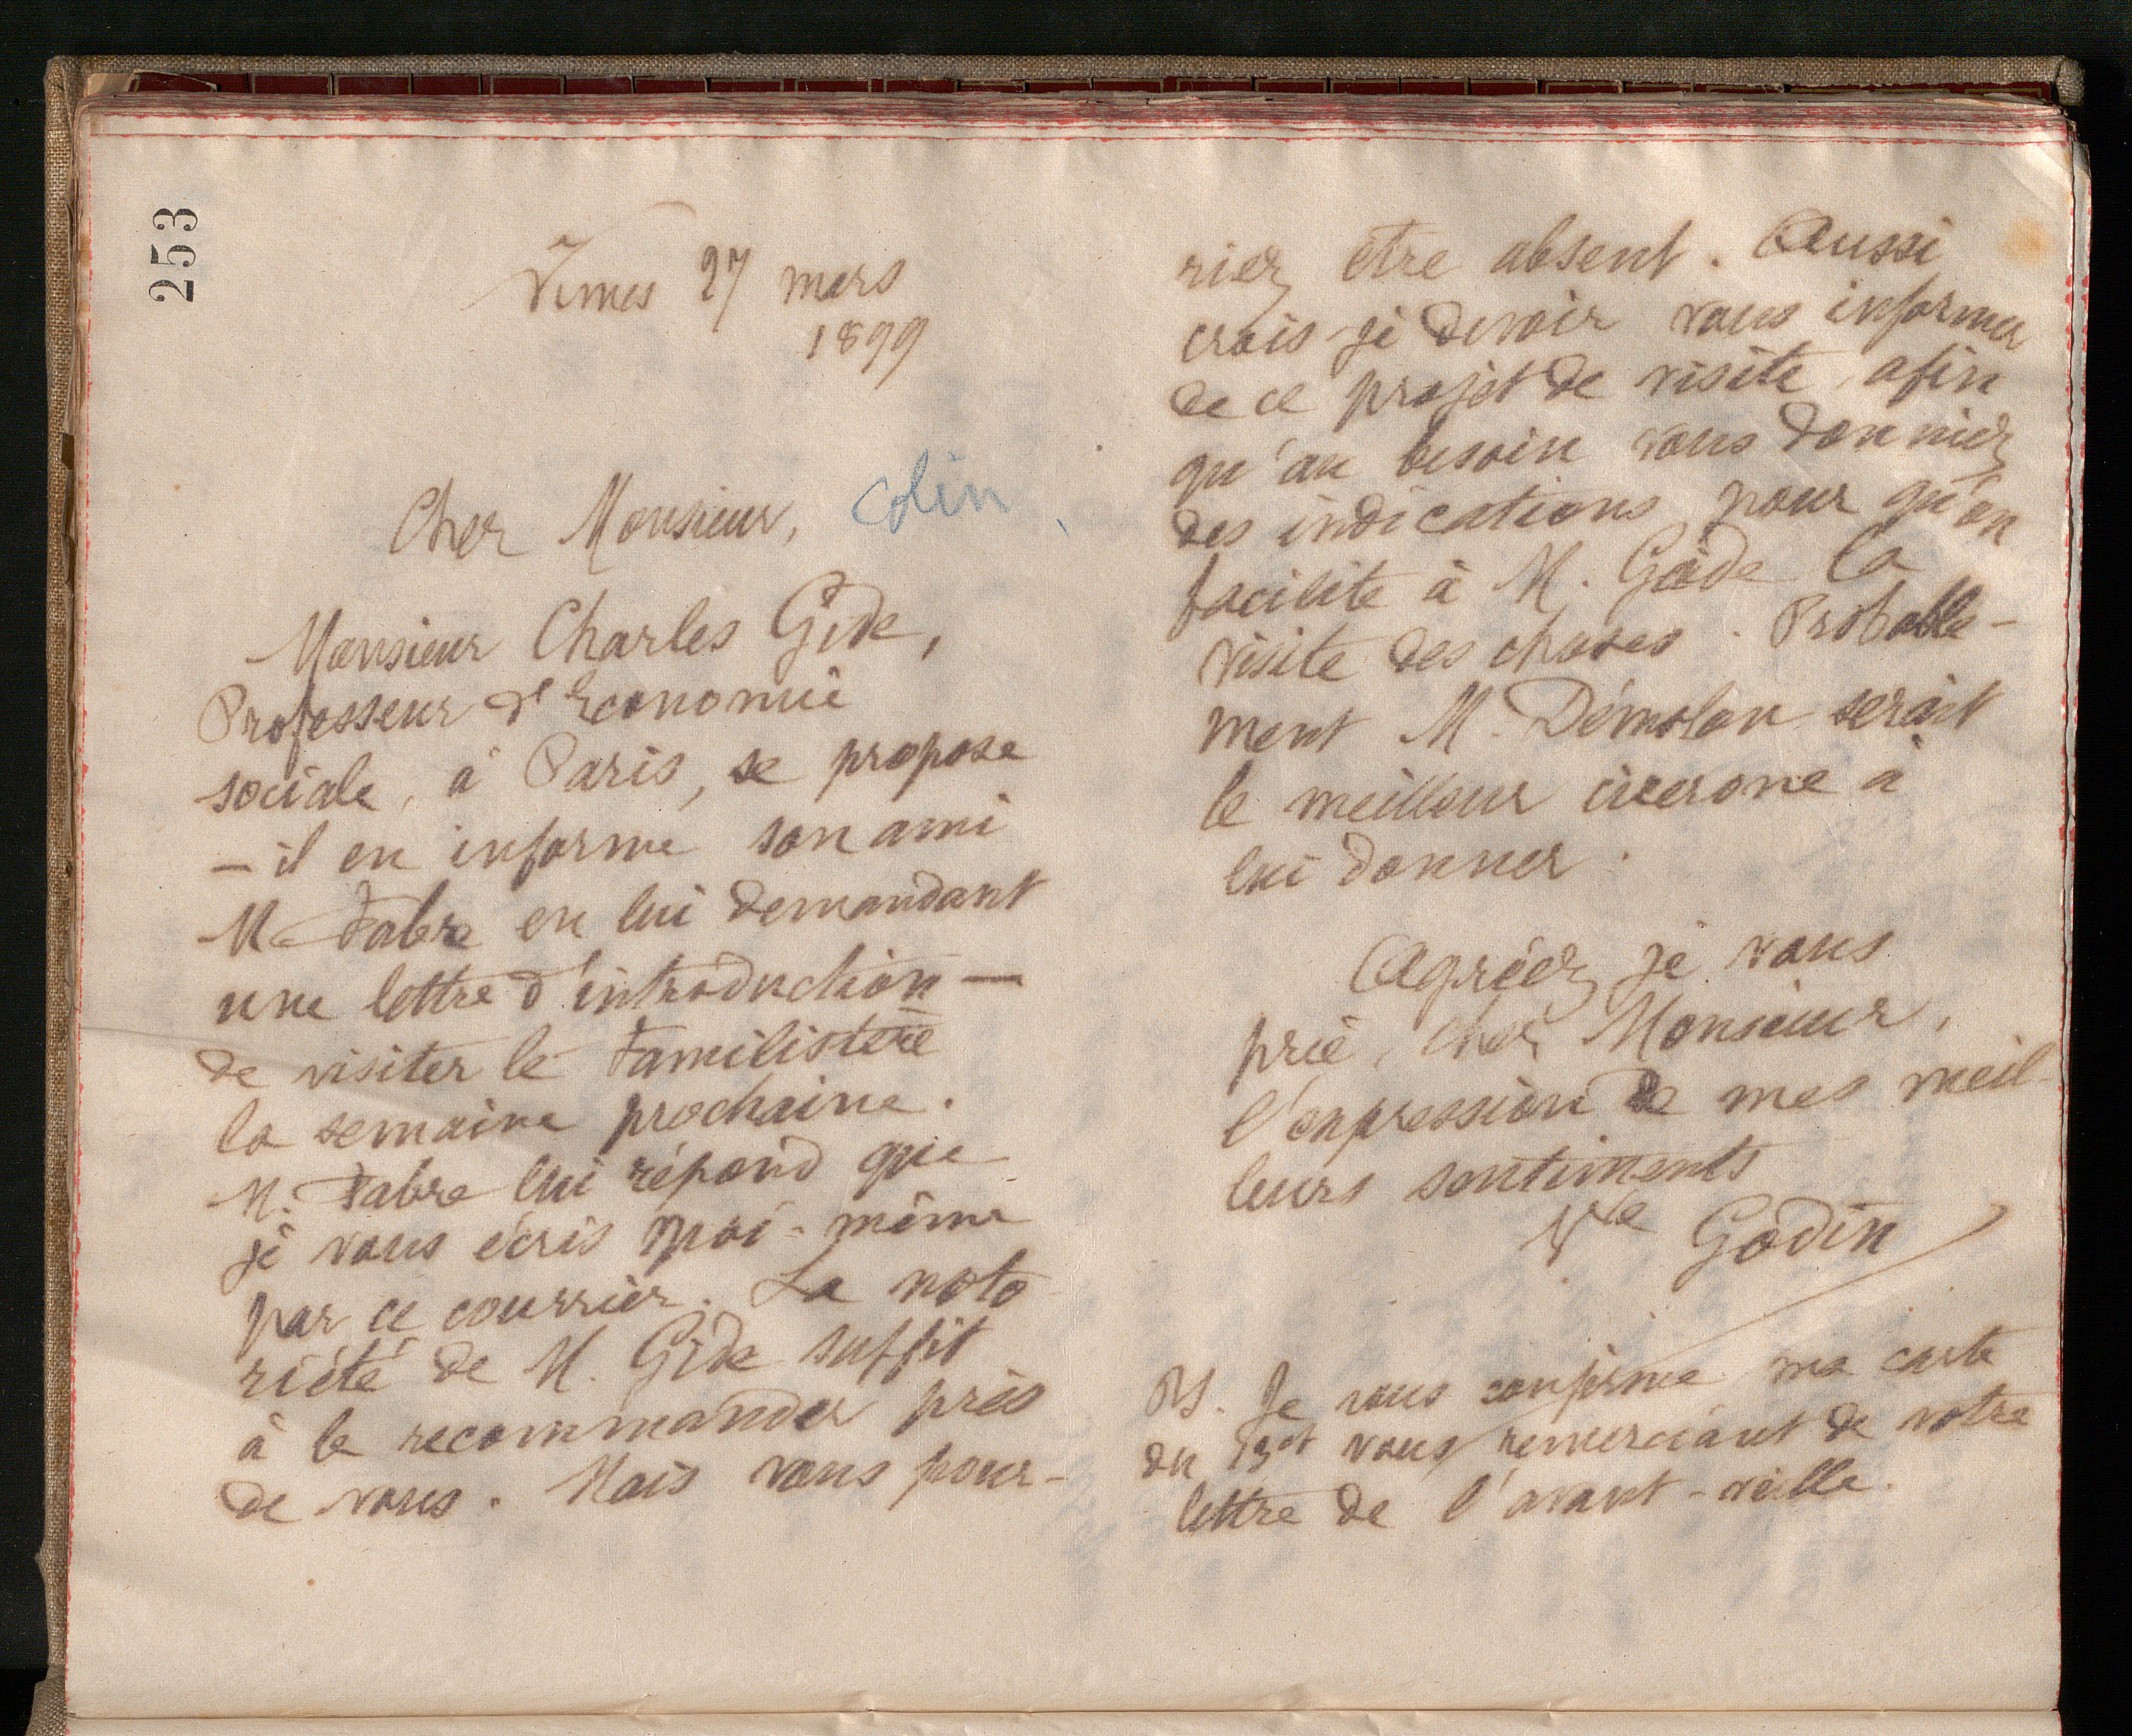 253
Nimes 27 mars
1899
Cher Monsieur, Colin
Monsieur Charles Gide,
Professeur d'Economie
sociale, à Paris, se propose
— il en informe son ami
M. Fabre en lui demandant
une lettre d'introduction —
de visiter le Familistère
la semaine prochaine.
M. Fabre lui répond que
je vous écris moi-même
par ce courrier. La noto
riété de M. Gide suffit
à le recommander près
de vous. Mais vous pour-
riez être absent. Aussi
crois-je devoir vous informer
de ce projet de visite, afin
qu'au besoin vous donniez
des indications pour qu'on
facilite à M. Gide la
visite des choses. Probable-
ment M. Démolon serait
le meilleur cicerone à
lui donner.
Agréez, je vous
prie, cher Monsieur,
l'expression de mes meil-
leurs sentiments
Vve Godin
PS. Je vous confirme ma carte
du ct vous remerciant de votre
lettre de l'avant-veille.